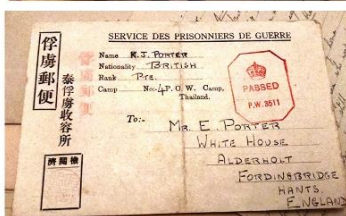 SERVICE DES PRISONNIERS DE GUERRE
俘虜郵便
泰俘虜收容所
檢閲濟
俘虜郵便
Name R.J. PORTER
Nationality BRITISH
Rank Pte.
Camp No. 4 P.O.W. Camp,
Thailand.
PASSED
P.W. 3511
To:-
MR. E. PORTER
WHITE HOUSE
ALDERHOLT
FORDINGBRIDGE
HANTS.
ENGLAND